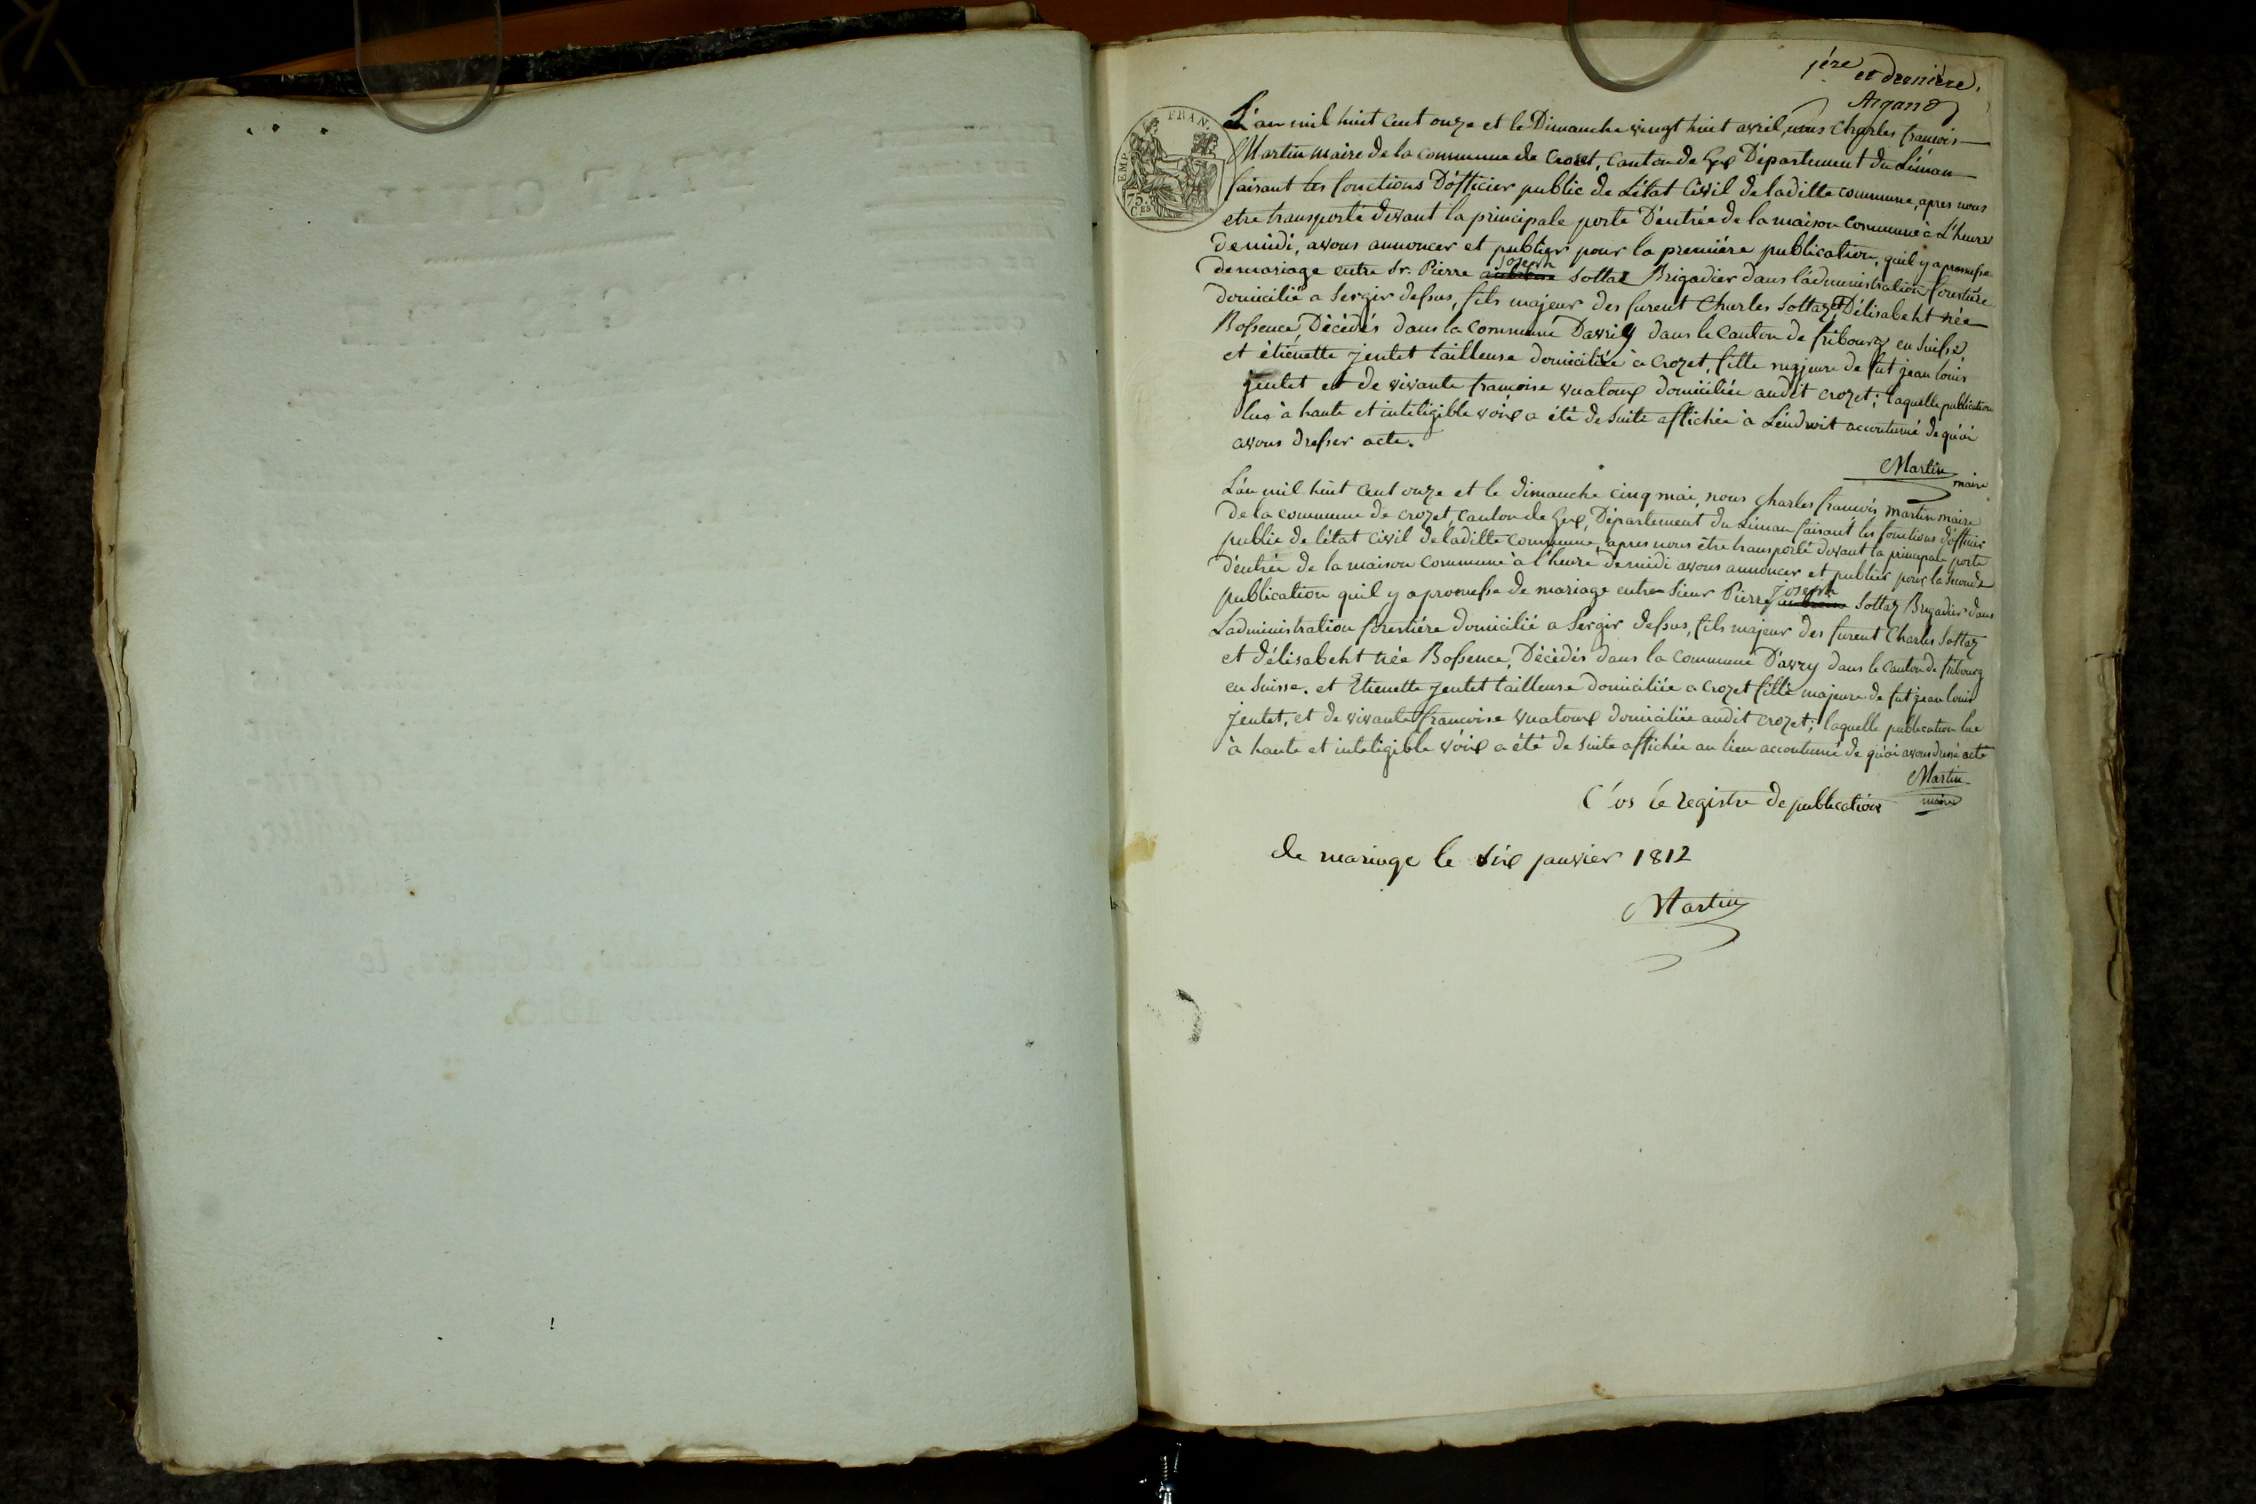 1ére et dernière.
Argand
L'an mil huit cent onze et le Dimanche vingt huit avril, nous Charles françois
Martin maire de la commune de Crozet, Canton de Gex Département du Léman
faisant les fonctions D'officier public de L'état Civil de laditte commune, apres nous
etre transporté devant la principale porte D'entrée de la maison commune à L'heure
de midi, avons annoncer et publier pour la premiére publication, quil y a promesse
de mariage entre Sr. Pierre Joseph Sottaz Brigadier dans l'administration forestière
domicilié a Sergir dessus, fils majeur des furent Charles Sottaz et Délisabeht née
Bossence, Décédés dans la commune Davry dans le Canton de fribourg en Suisse,
et étienette jentet tailleuse domiciliée à Crozet, fille majeure de fut jean louis
jentet et de vivante francoise vuatoux domiciliée audit crozet; laquelle publication
lue à haute et inteligible voix a été de suite affichée à Lendroit accoutumé de quoi
avons dresser acte.
Martin
maire
L'an mil huit cent onze et le dimanche cinq mai, nous Charles francois martin maire
De la commune de crozet, canton de Gex, Département du Léman faisant les fonctions d'officier
public de létat civil de laditte commune, apres nous être transporté devant la principale porte
D'entrée de la maison commune à l'heure de midi avons annoncer et publier pour la seconde
publication quil y a promesse de mariage entre Sieur Pierre Joseph Sottaz Brigadier dans
Ladministration forestiére domicilié a Sergir dessus, fils majeur des furent Charles Sottaz
et d'élisabeht née Bossence, Décédés dans la commune D'avry dans le canton de fribourg
en Suisse. et Etienette jentet tailleuse domiciliée a crozet fille majeure de fut jean louis
jentet, et de vivante francoise vuatoux domiciliée audit crozet; laquelle publication lue
à haute et inteligible voix a été de suite affichée au lieu accoutumé de quoi avons dressé acte
Martin
maire
Clos le registre de publication
de mariage le six janvier 1812
Martin
EMP. FRAN.
75.
CES